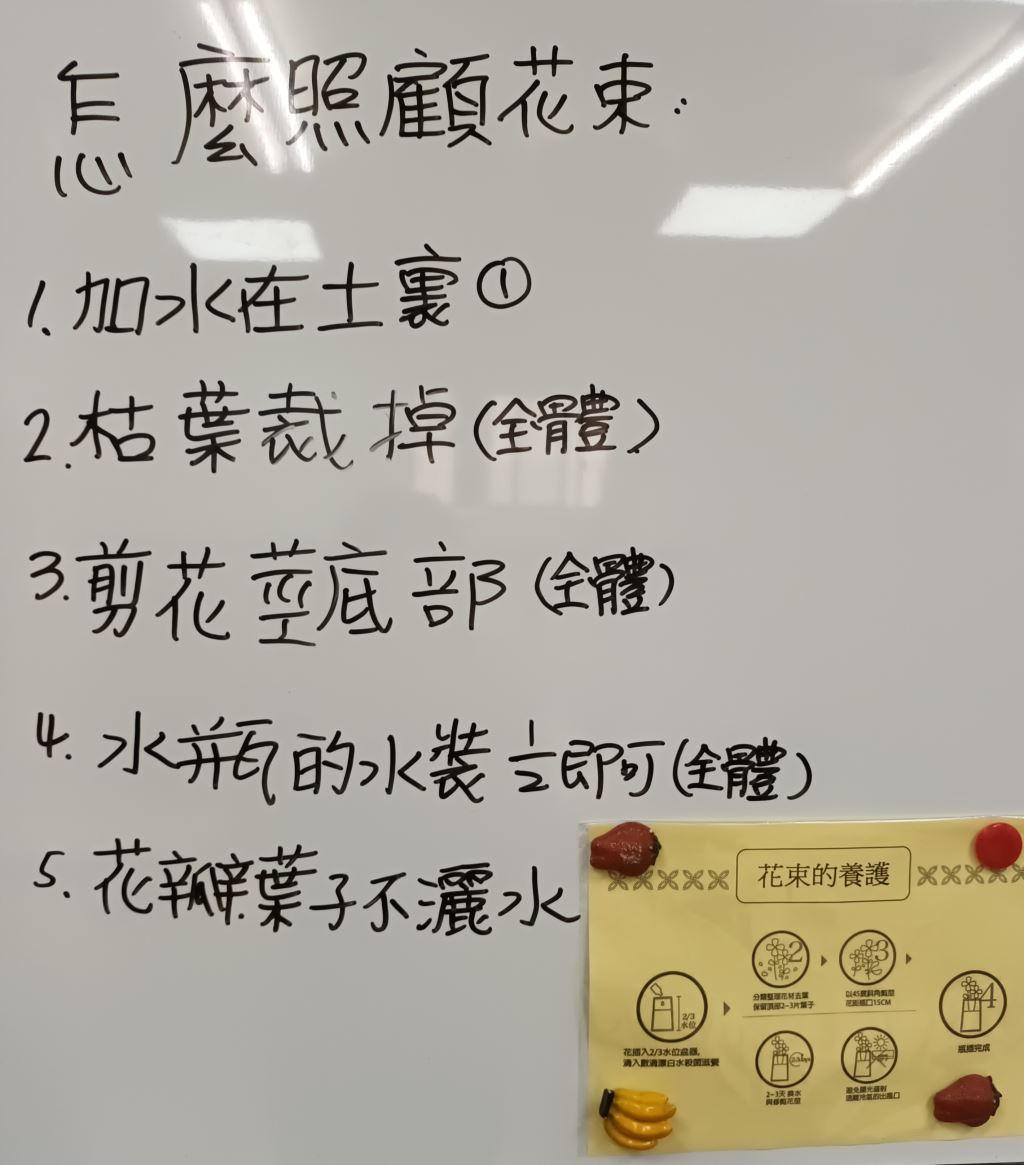 怎麼照顧花束:
1. 加水在土裏①
2. 枯葉裁掉(全體)
3. 剪花莖底部(全體)
4. 水瓶的水裝½即可(全體)
5. 花瓣葉子不灑水
花束的養護
2/3
水位
花插入2/3水位盆器,
滴入數滴漂白水殺菌滋養
2
分類整理花材去葉
保留頂部2~3片葉子
3
以45度斜角剪莖
花距瓶口15CM
4
瓶插完成
2~3天 換水
與修剪花莖
避免陽光直射
遠離冷氣的出風口